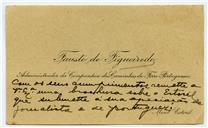 Fausto de Figueiredo
Administrador da Companhia dos Caminhos de Ferro Portugueses
Com os seus cumprimentos remette a
V. Exª uma brochura sobre o Estoril
que submette á sua apreciação de
jornalista e de portuguez.
Mont' Estoril